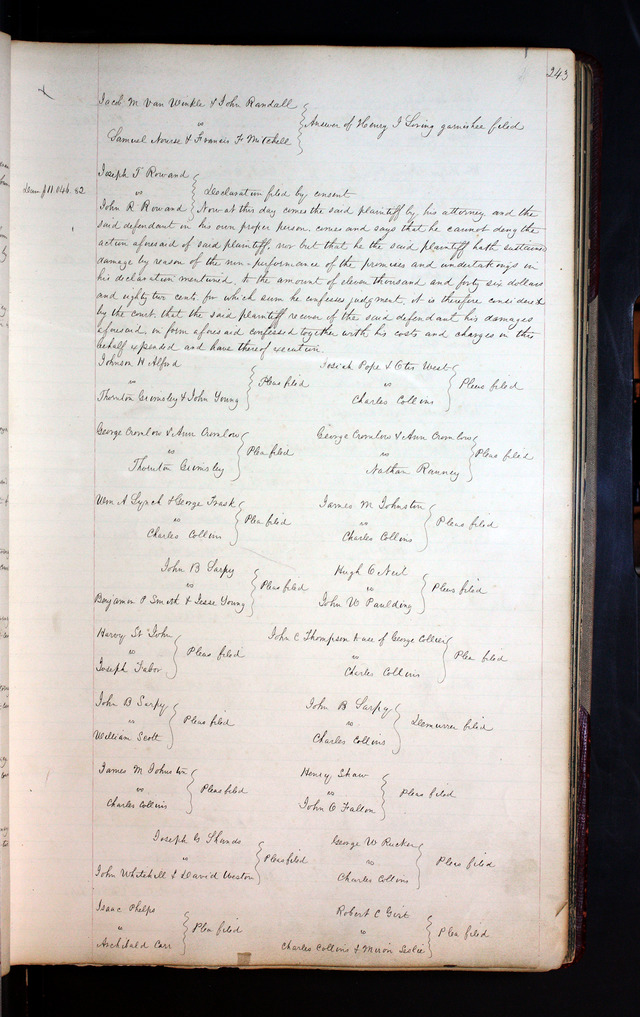 243
Jacob M Van Winkle & John Randall
vs
Samuel Nourse & Francis H Mitchell
Answer of Henry I Loring garnishee filed
Joseph T Rowand
Dam $11.046.82
vs
Declaration filed by consent
John R Rowand
Now at this day comes the said plaintiff by his attorney and the
said defendant in his own proper person comes and says that he cannot deny the
action aforesaid of said plaintiff, nor but that he the said plaintiff hath sustained
damage by reason of the non-performance of the promises and undertakings in
his declaration mentioned, to the amount of eleven thousand and forty six dollars
and eighty two cents for which sum he confesses judgment, it is therefore considered
by the court that the said plaintiff recover of the said defendant his damages
aforesaid in form aforesaid confessed together with his costs and charges in this
behalf expended and have thereof execution
Johnson H Alford
vs
Thornton Grimsley & John Young
Pleas filed
Josiah Pope & Otis West
vs
Charles Collins
Pleas filed
George Cromlow & Ann Cromlow
vs
Thornton Grimsley
Plea filed
George Cromlow & Ann Cromlow
vs
Nathan Ranney
Pleas filed
Wm A Lynch & George Trask
vs
Charles Collins
Plea filed
James M Johnston
vs
Charles Collins
Pleas filed
John B Sarpy
vs
Benjamin P Smith & Jesse Young
Pleas filed
Hugh O Neil
vs
John W Paulding
Pleas filed
Harvy St John
vs
Joseph Tabor
Pleas filed
John C Thompson to use of George Collier
vs
Charles Collins
Plea filed
John B Sarpy
vs
William Scott
Pleas filed
John B Sarpy
vs
Charles Collins
Demurrer filed
James M Johnston
vs
Charles Collins
Pleas filed
Henry Shaw
vs
John O Fallon
Pleas filed
Joseph G Shands
vs
John Whitehill & David Weston
Pleas filed
George W Rucker
vs
Charles Collins
Pleas filed
Isaac Phelps
vs
Archibald Carr
Plea filed
Robert C Gist
vs
Charles Collins & Miron Leslie
Plea filed